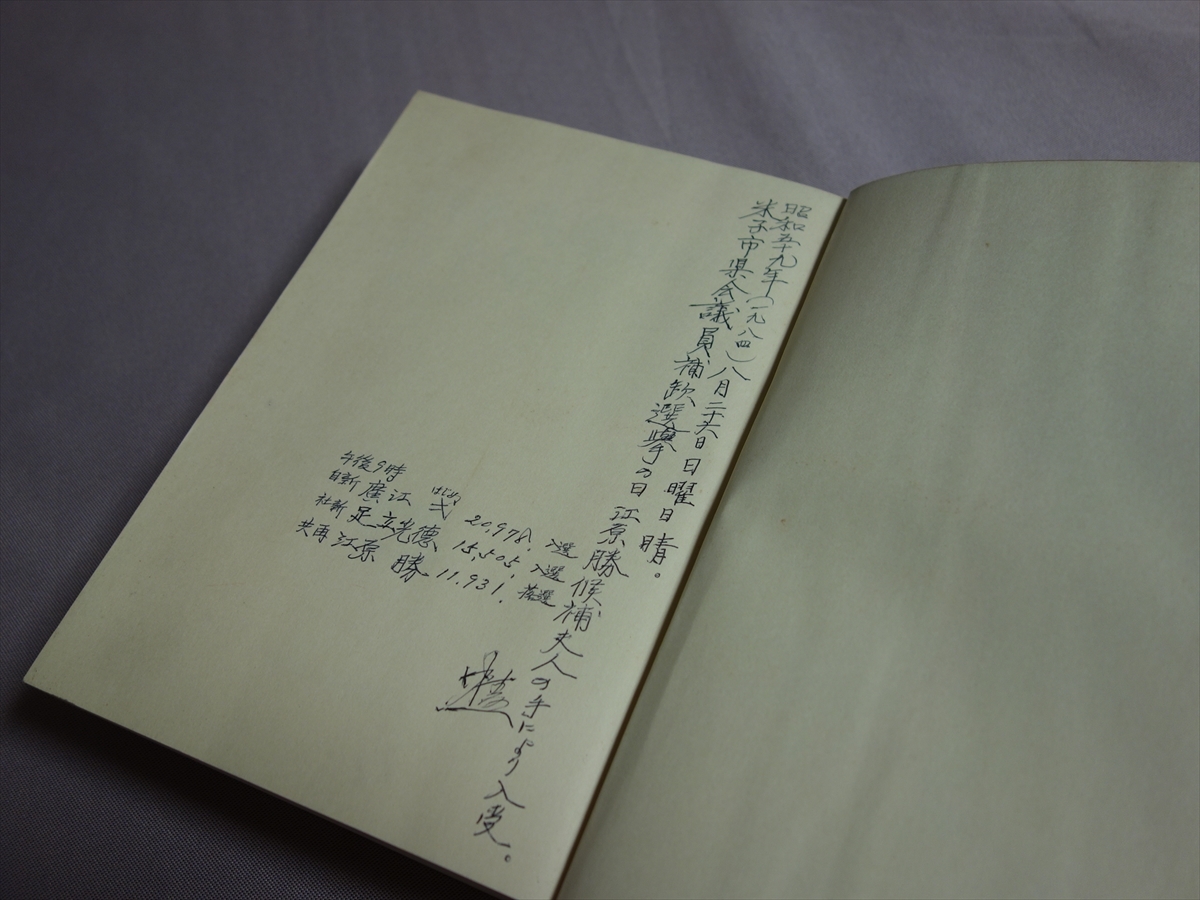 昭和五十九年(一九八四)八月二十六日日曜日晴。
米子市県会議員補欠選挙の日江原勝候補夫人の手により入受。
午後9時
自新 廣江 弌 はじめ 20,978, 入選
社新 足立光徳 15,505, 入選
共再 江原 勝 11.931. 落選